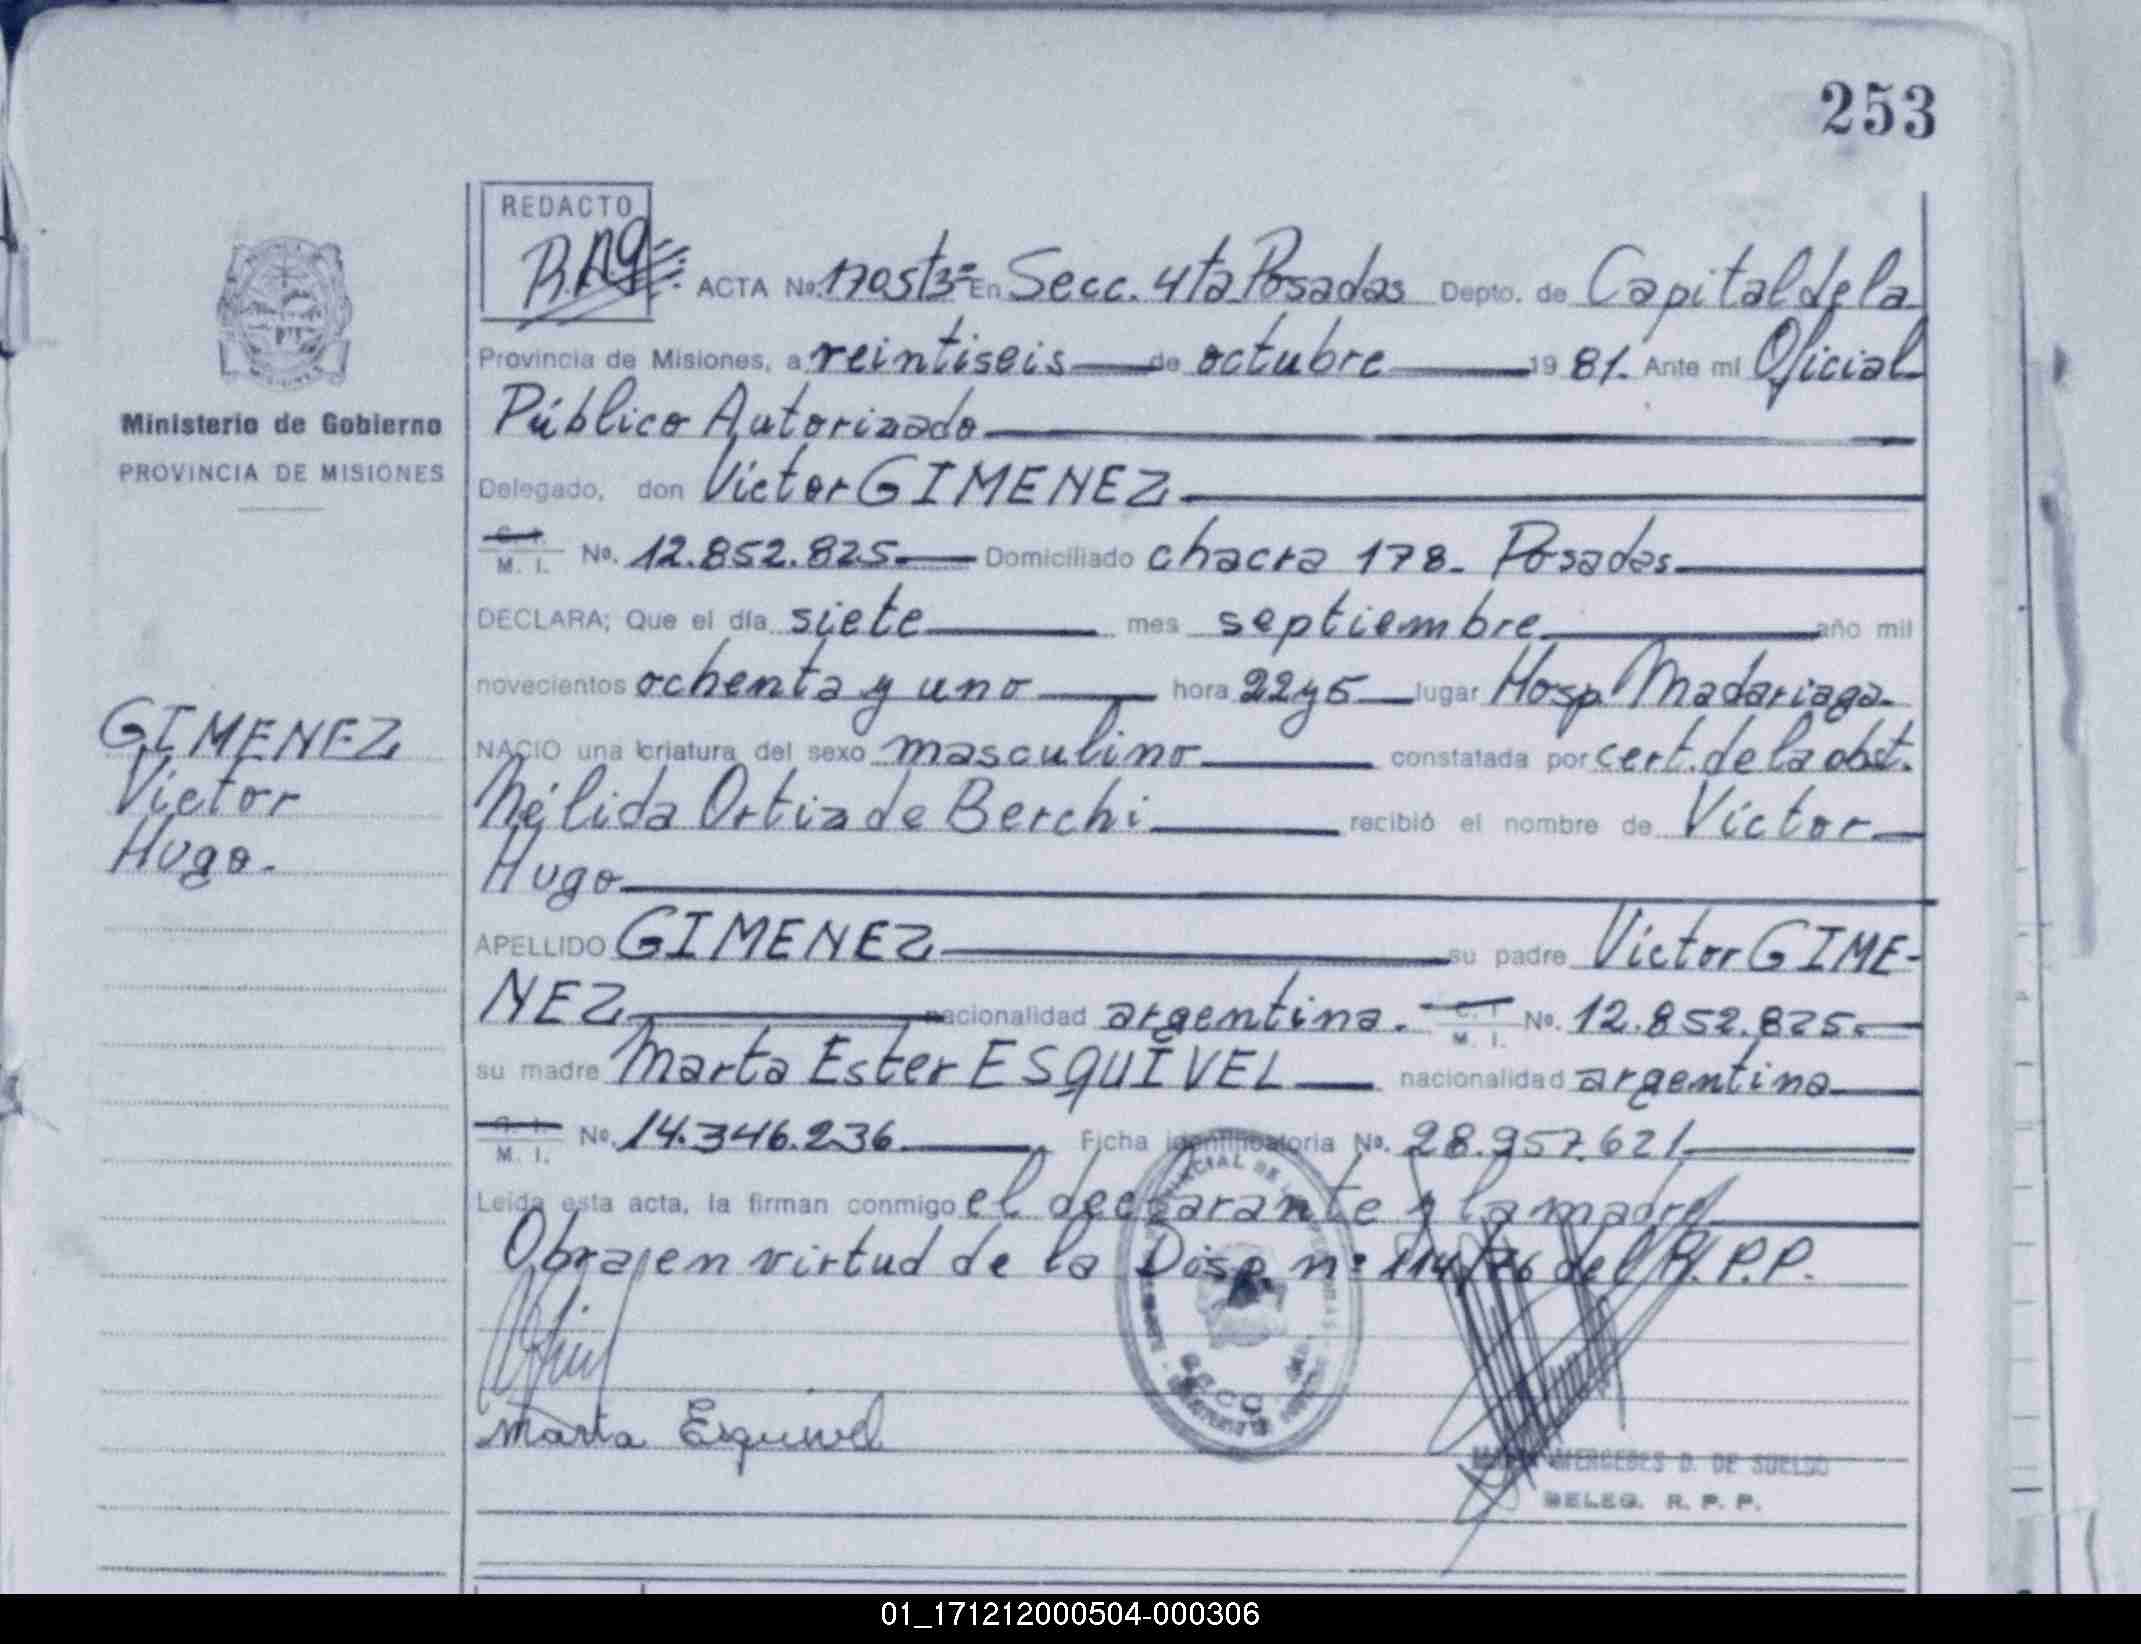 253
REDACTO
ACTA No. 1705 T3º En Secc. 4ta Posadas Depto. de Capital de la
Provincia de Misiones, a veintiseis de octubre 1981. Ante mi Oficial
Público Autorizado
Ministerio de Gobierno
PROVINCIA DE MISIONES
Delegado, don Victor GIMENEZ
C. I.
M. I. No. 12.852.825. Domiciliado chacra 178. Posadas.
DECLARA; Que el día siete mes septiembre año mil
novecientos ochenta y uno hora 22y5 lugar Hosp. Madariaga.
GIMENEZ
Victor
Hugo.
NACIO una criatura del sexo masculino constatada por cert. de la obst.
Nélida Ortiz de Berchi recibió el nombre de Victor
Hugo
APELLIDO GIMENEZ su padre Victor GIME-
NEZ nacionalidad argentina. C. I.
M. I. No. 12.852.825.
su madre Marta Ester ESQUÍVEL nacionalidad argentina
C. I.
M. I. No. 14.346.236 Ficha identificatoria No. 28.957.621
Leida esta acta, la firman conmigo el declarante y la madre
Obra en virtud de la Disp. nº 114/76 del R.P.P.
Marta Esquivel
MERCEDES D. DE SUELDO
DELEG. R. P. P.
01_171212000504-000306